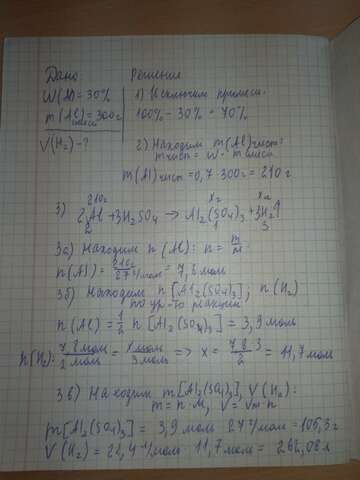 Дано:
Решение
W(д) = 30%
1) Исключим примеси.
m(Al)смеси = 300г
100% - 30% = 70%
V(H₂) - ?
2) Находим m(Al)чист:
mчист = w · mсмеси
m(Al)чист = 0,7 · 300г = 210г
210г x г x л
3) 2Al + 3H₂SO₄ → Al₂(SO₄)₃ + 3H₂↑
2 1 3
3а) Находим n(Al): n = m/M
n(Al) = 210г/27г/моль = 7,8 моль
3б) Находим n[Al₂(SO₄)₃], n(H₂)
по ур-ю реакции
n(Al) = 1/2 n[Al₂(SO₄)₃] = 3,9 моль
n(H₂): 7,8 моль/2 моль = x моль/3 моль => x = 7,8 · 3/2 = 11,7 моль
3в) Находим m[Al₂(SO₄)₃], V(H₂):
m = n · M, V = Vm · n
m[Al₂(SO₄)₃] = 3,9 моль · 27 г/моль = 105,3 г
V(H₂) = 22,4 л/моль · 11,7 моль = 262,08 л